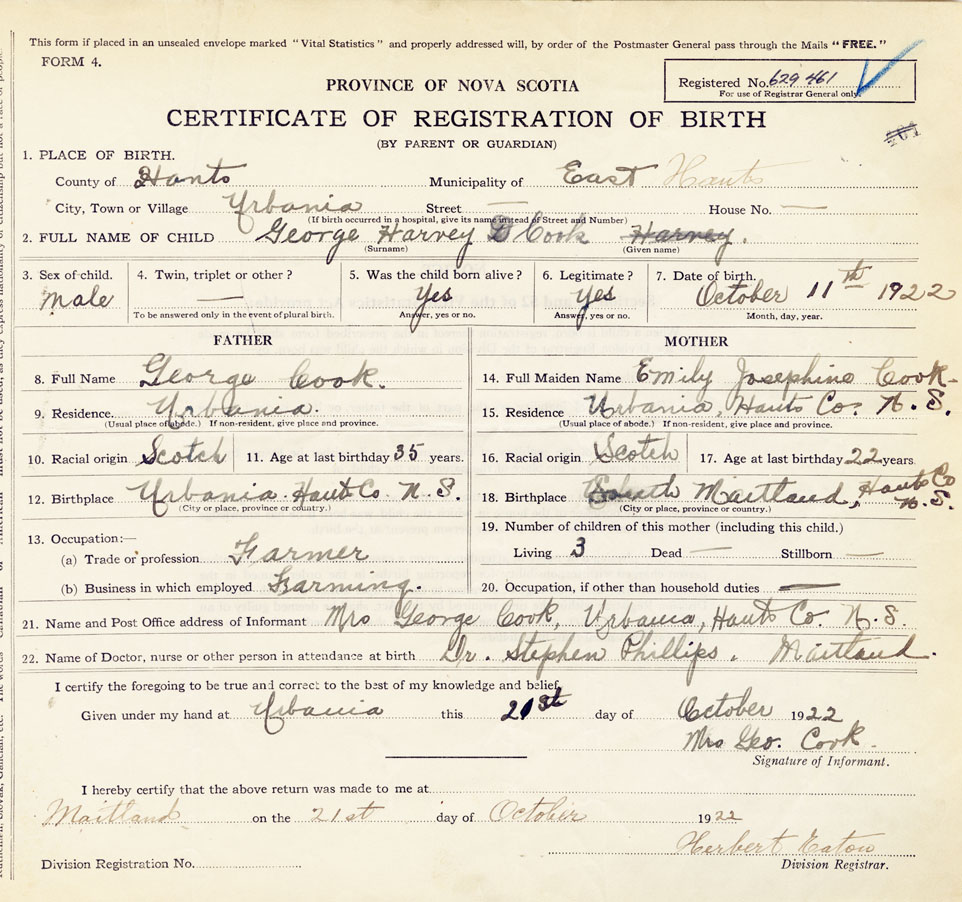 This form if placed in an unsealed envelope marked "Vital Statistics" and properly addressed will, by order of the Postmaster General pass through the Mails "FREE."
FORM 4.
Registered No. 629 461
For use of Registrar General only.
PROVINCE OF NOVA SCOTIA
CERTIFICATE OF REGISTRATION OF BIRTH
(BY PARENT OR GUARDIAN)
461
1. PLACE OF BIRTH.
County of Hants Municipality of East Hants
City, Town or Village Urbania Street — House No. —
(If birth occurred in a hospital, give its name instead of Street and Number)
2. FULL NAME OF CHILD George Harvey D Cook Harvey.
(Surname) (Given name)
3. Sex of child. 4. Twin, triplet or other? 5. Was the child born alive? 6. Legitimate? 7. Date of birth.
Male — Yes Yes October 11th 1922
To be answered only in the event of plural birth. Answer, yes or no. Answer, yes or no. Month, day, year.
FATHER MOTHER
8. Full Name George Cook. 14. Full Maiden Name Emily Josephine Cook-
9. Residence. Urbania. 15. Residence Urbania, Hants Co. N. S.
(Usual place of abode.) If non-resident, give place and province. (Usual place of abode.) If non-resident, give place and province.
10. Racial origin Scotch 11. Age at last birthday 35 years. 16. Racial origin Scotch 17. Age at last birthday 22 years.
12. Birthplace Urbania. Hants Co. N. S. 18. Birthplace South Maitland, Hants Co N. S.
(City or place, province or country.) (City or place, province or country.)
13. Occupation:— 19. Number of children of this mother (including this child.)
(a) Trade or profession Farmer Living 3 Dead — Stillborn —
(b) Business in which employed Farming. 20. Occupation, if other than household duties —
21. Name and Post Office address of Informant Mrs George Cook, Urbania, Hants Co. N. S.
22. Name of Doctor, nurse or other person in attendance at birth Dr. Stephen Phillips. Maitland.
I certify the foregoing to be true and correct to the best of my knowledge and belief.
Given under my hand at Urbania this 21st day of October 1922
Mrs Geo. Cook.
Signature of Informant.
I hereby certify that the above return was made to me at
Maitland on the 21st day of October 1922
Herbert Eaton
Division Registrar.
Division Registration No.